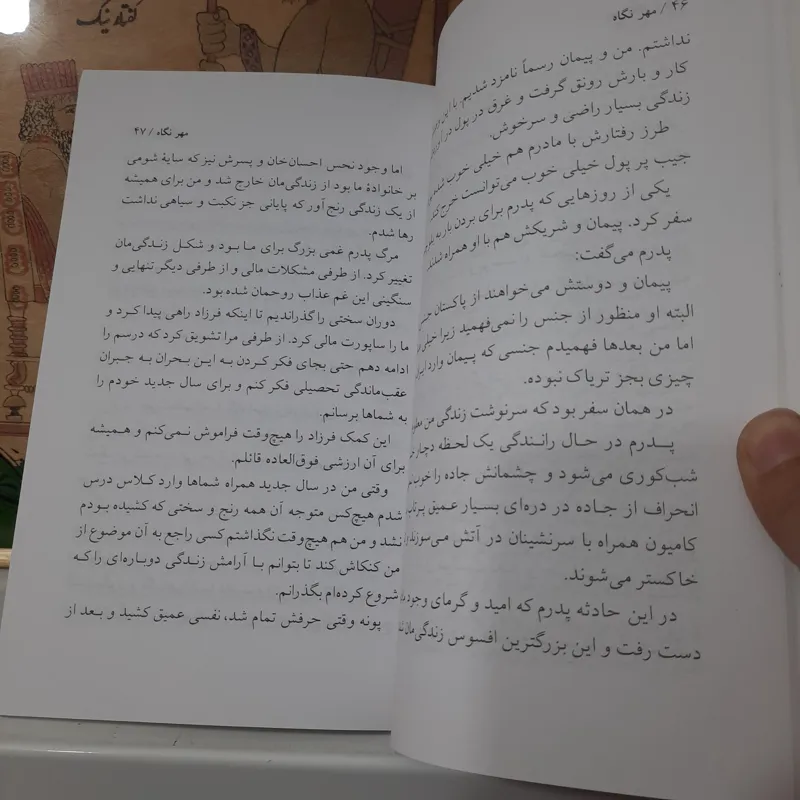 گفتار نیک
۴۶ / مهر نگاه
نداشتم. من و پیمان رسماً نامزد شدیم. با این
کار و بارش رونق گرفت و غرق در پول در
زندگی بسیار راضی و سرخوش.
طرز رفتارش با مادرم هم خیلی خوب شده
جیب پر پول خیلی خوب می‌توانست خرج کند
یکی از روزهایی که پدرم برای بردن بار به
سفر کرد. پیمان و شریکش هم با او همراه شدند
پدرم می‌گفت:
پیمان و دوستش می‌خواهند از پاکستان
البته او منظور از جنس را نمی‌فهمید زیرا خیلی
اما من بعدها فهمیدم جنسی که پیمان وارد
چیزی بجز تریاک نبوده.
در همان سفر بود که سرنوشت زندگی من
پدرم در حال رانندگی یک لحظه دچار
شب‌کوری می‌شود و چشمانش جاده را خوب
انحراف از جاده در دره‌ای بسیار عمیق
کامیون همراه با سرنشینان در آتش می‌سوزند
خاکستر می‌شوند.
در این حادثه پدرم که امید و گرمای وجود
دست رفت و این بزرگترین افسوس زندگی‌مان
مهر نگاه / ۴۷
اما وجود نحس احسان‌خان و پسرش نیز که سایهٔ شومی
بر خانوادهٔ ما بود از زندگی‌مان خارج شد و من برای همیشه
از یک زندگی رنج آور که پایانی جز نکبت و سیاهی نداشت
رها شدم.
مرگ پدرم غمی بزرگ برای ما بود و شکل زندگی‌مان
تغییر کرد. از طرفی مشکلات مالی و از طرفی دیگر تنهایی و
سنگینی این غم عذاب روحمان شده بود.
دوران سختی را گذراندیم تا اینکه فرزاد راهی پیدا کرد و
ما را ساپورت مالی کرد. از طرفی مرا تشویق کرد که درسم را
ادامه دهم حتی بجای فکر کردن به این بحران به جبران
عقب‌ماندگی تحصیلی فکر کنم و برای سال جدید خودم را
به شماها برسانم.
این کمک فرزاد را هیچ‌وقت فراموش نمی‌کنم و همیشه
برای آن ارزشی فوق‌العاده قائلم.
وقتی من در سال جدید همراه شماها وارد کلاس درس
شدم هیچ‌کس متوجه آن همه رنج و سختی که کشیده بودم
نشد و من هم هیچ‌وقت نگذاشتم کسی راجع به آن موضوع از
من کنکاش کند تا بتوانم با آرامش زندگی دوباره‌ای را که
شروع کرده‌ام بگذرانم.
پونه وقتی حرفش تمام شد، نفسی عمیق کشید و بعد از